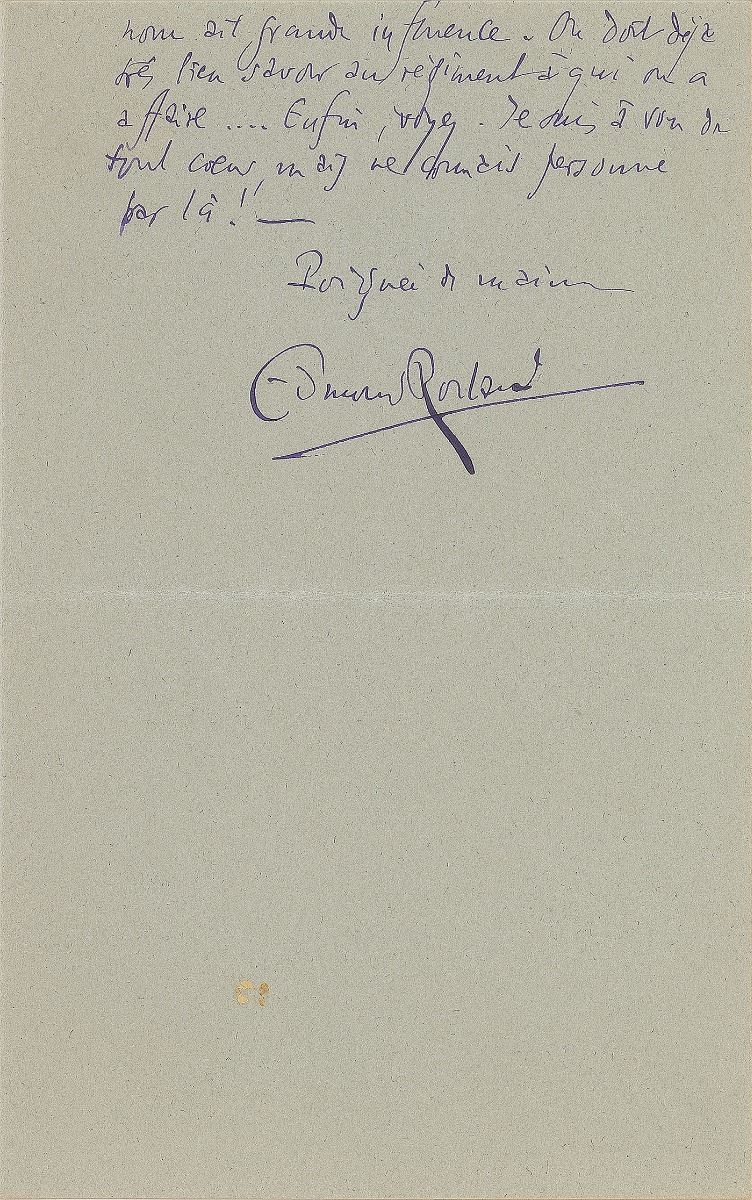 nom ait grande influence. On doit déjà
très bien savoir au régiment à qui on a
affaire .... Enfin, voyez. Je suis à vous de
tout cœur, mais ne connais personne
par là ! —
Poignée de mains
Edmond Rostand